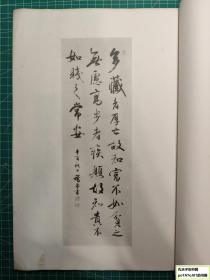 多藏者厚亡故知富不如貧之
無慮高步者疾顛故知貴不
如賤之常安
孔夫子旧书网